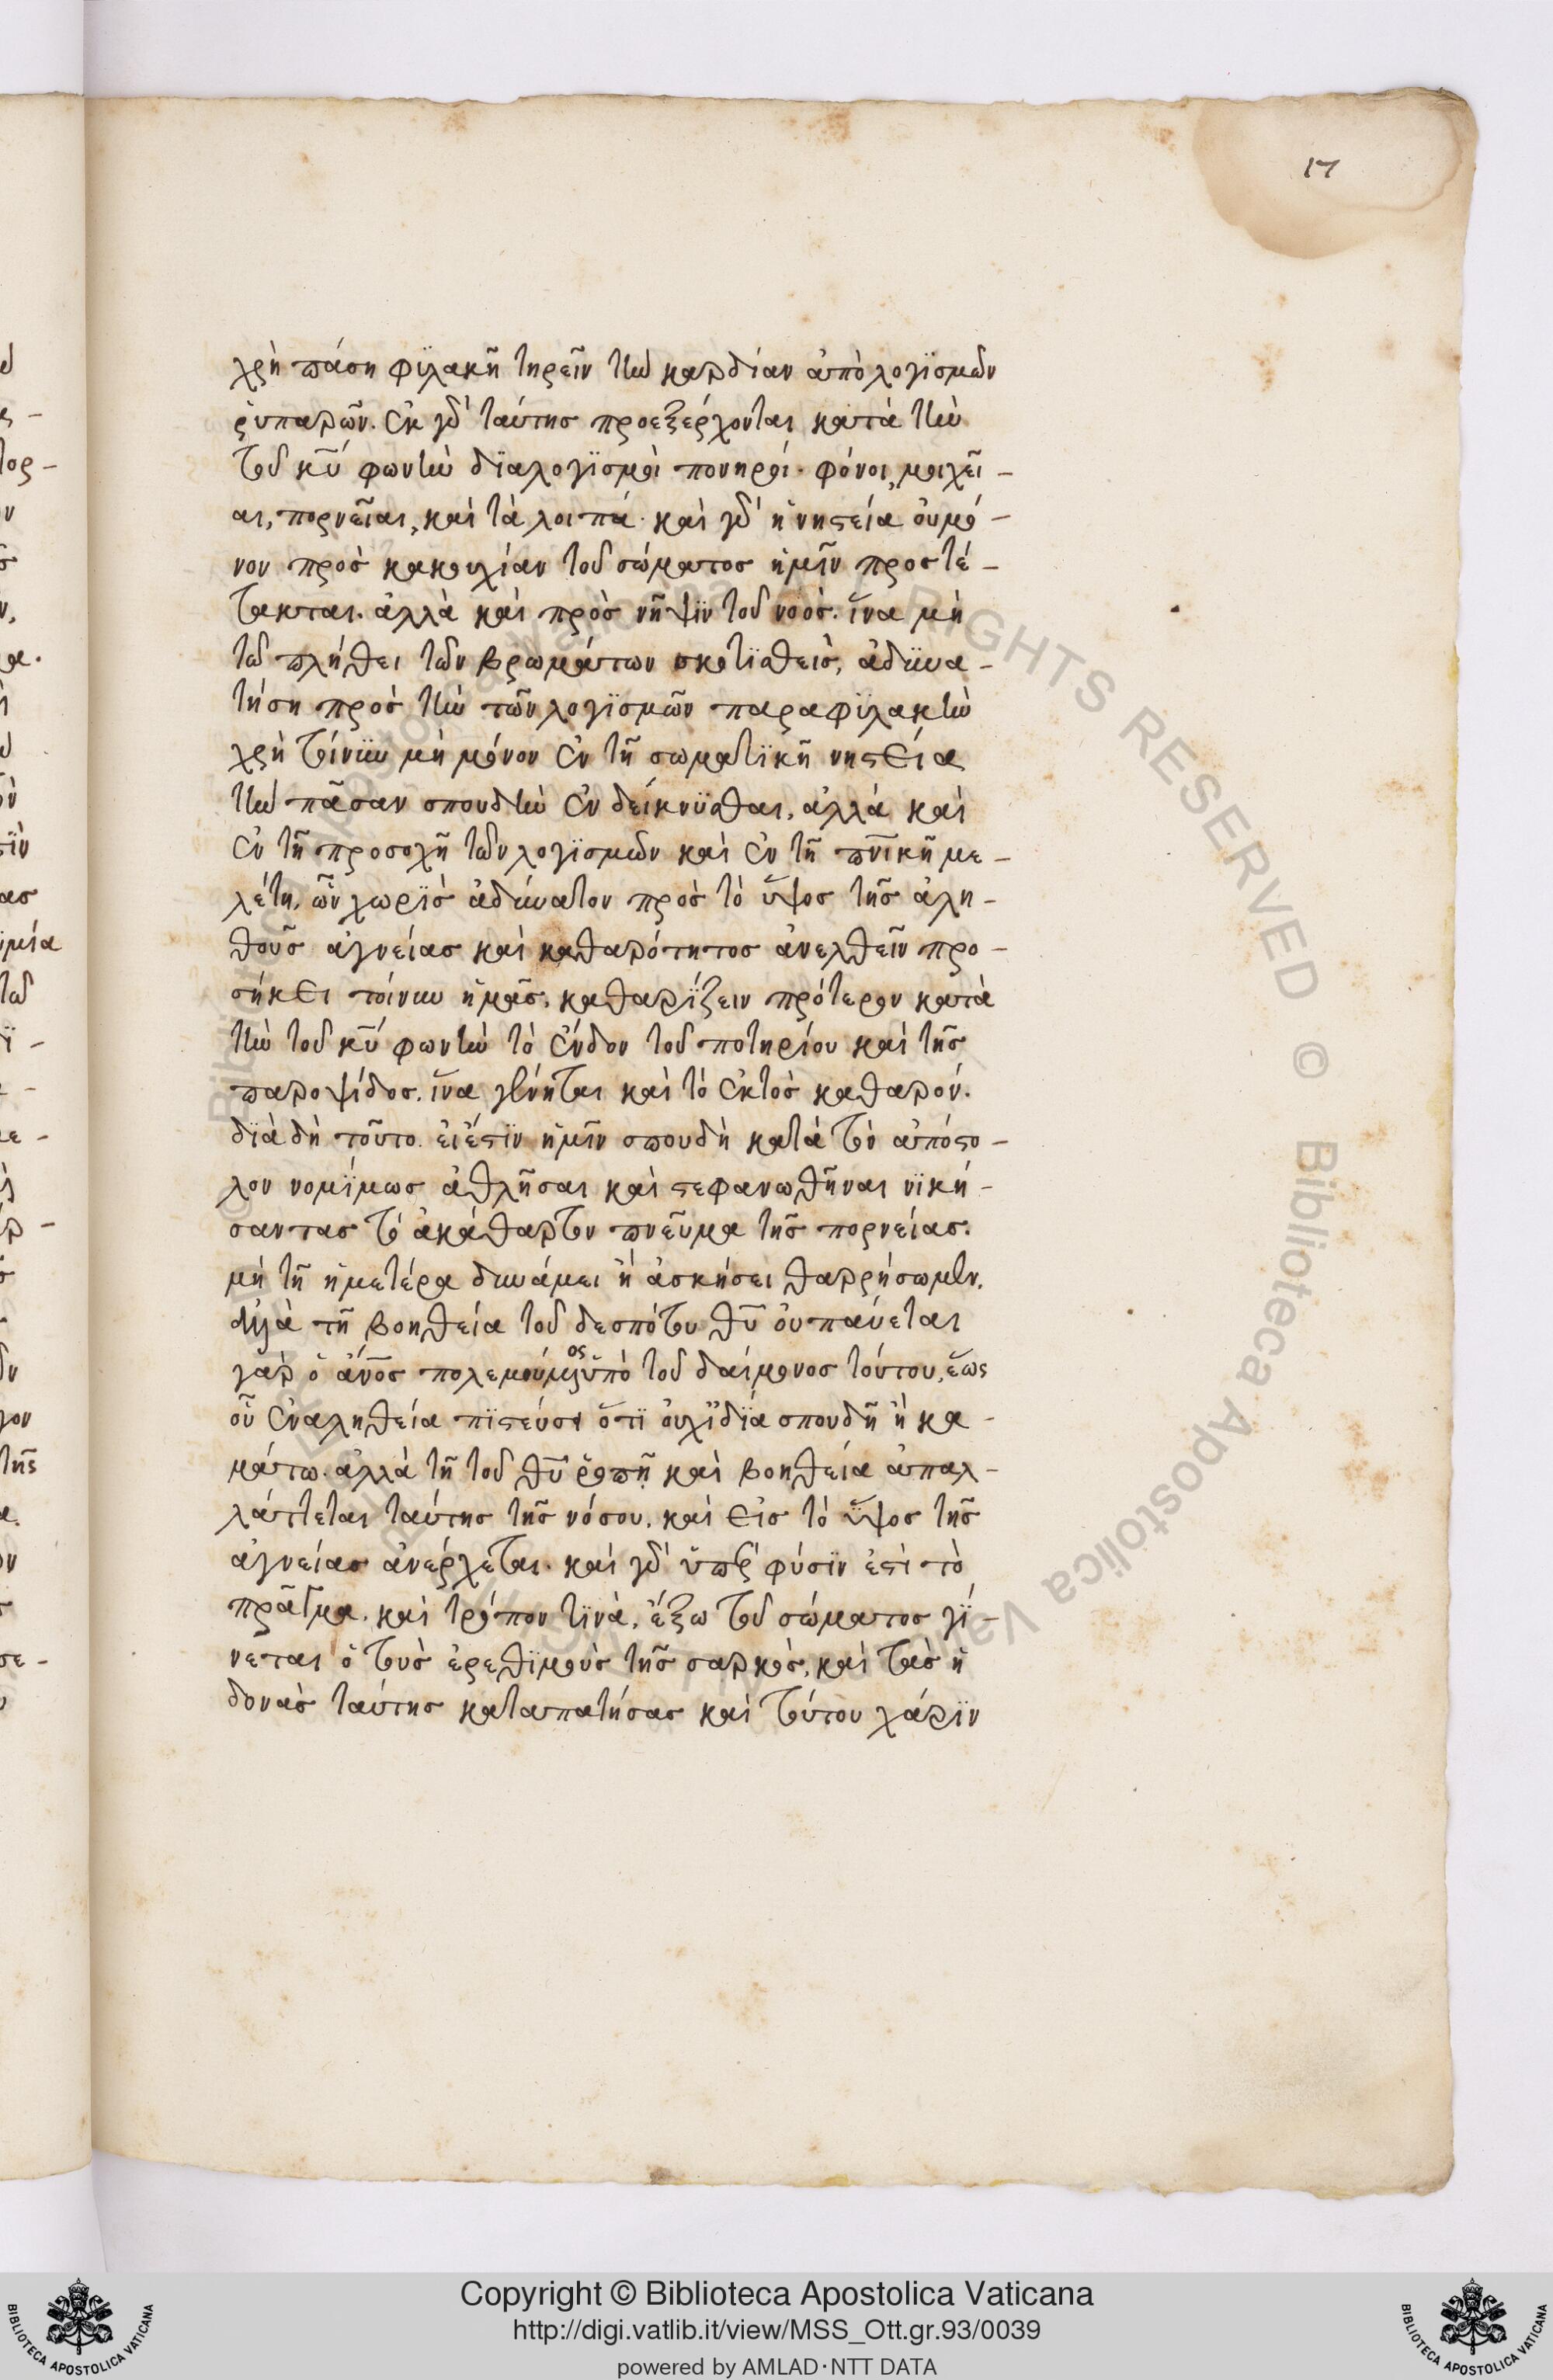 17
χρὴ πάση φϊλακῆ τηρεῖν τὴν καρδίαν ἀπὸ λογϊσμῶν
ῥυπαρῶν. ἐκ γὰρ ταύτης προεξέρχονται κατὰ τὴν
τοῦ κυ̅ φωνὴν δϊαλογϊσμοὶ πονηροί. φόνοι, μοιχεῖ-
αι, πορνεῖαι, καὶ τὰ λοιπά. καὶ γὰρ ἡ νηστεία οὐ μό-
νον πρὸς κακουχίαν τοῦ σώματος ἡμῖν προστέ-
τακται. ἀλλὰ καὶ πρὸς νῆψϊν τοῦ νοός. ἵνα μὴ
τῶ πλήθει τῶν βρωμάτων σκοτϊσθεὶς, ἀδϋνα-
τήση πρὸς τὴν τῶν λογϊσμῶν παραφϊλακὴν
χρὴ τοίνϋν μὴ μόνον ἐν τῆ σωματϊκῆ νηστεία
τὴν πᾶσαν σπουδὴν ἐν δείκνϋσθαι, ἀλλὰ καὶ
ἐν τῆ προσοχῆ τῶν λογϊσμῶν καὶ ἐν τῆ πν̅ικῆ με-
λέτη, ὧν χωρϊς ἀδύνατον πρὸς τὸ ὕψος τῆς ἀλη-
θοῦς ἁγνείας καὶ καθαρότητος ἀνελθεῖν προ-
σήκει τοίνυν ἡμᾶς, καθαρϊζειν πρότερον κατὰ
τὴν τοῦ κυ̅ φωνὴν τὸ ἔνδον τοῦ ποτηρίου καὶ τῆς
παροψίδος. ἵνα γένηται καὶ τὸ ἐκτὸς καθαρόν.
δϊὰ δὴ τοῦτο. εἰ ἐστϊν ἡμῖν σπουδὴ κατὰ τὸν ἀπόστο-
λον νομϊμως ἀθλῆσαι καὶ στεφανωθῆναι νϊκή-
σαντας τὸ ἀκάθαρτον πνεῦμα τῆς πορνείας.
μὴ τῆ ἡμετέρα δυνάμει ἢ ἀσκήσει θαρρήσωμεν.
ἀλλὰ τῆ βοηθεία τοῦ δεσπότου θυ̅ οὐ παύεται
γὰρ ὁ ἄν̅ος πολεμούμενος ὑπὸ τοῦ δαίμονος τούτου, ἕως
οὗ ἐν αληθεία πϊστεύση ὅτϊ οὐχὶ ϊδϊα σπουδῆ ἢ κα-
μάτω. ἀλλὰ τῆ τοῦ θυ̅ ῥοπῆ καὶ βοηθεία ἀπαλ-
λάττεται ταύτης τῆς νόσου. καὶ εἰς τὸ ὕψος τῆς
ἁγνείας ἀνέρχεται. καὶ γὰρ ὑπὲρ φύσϊν ἐστὶ τὸ
πρᾶγμα. καὶ τρόπον τϊνὰ, ἔξω τοῦ σώματος γϊ-
νεται ὁ τοὺς ἐρεθϊσμοὺς τῆς σαρκὸς, καὶ τὰς ἡ
δονὰς ταύτης καταπατήσας καὶ τούτου χάρϊν
Copyright © Biblioteca Apostolica Vaticana
http://digi.vatlib.it/view/MSS_Ott.gr.93/0039
powered by AMLAD·NTT DATA